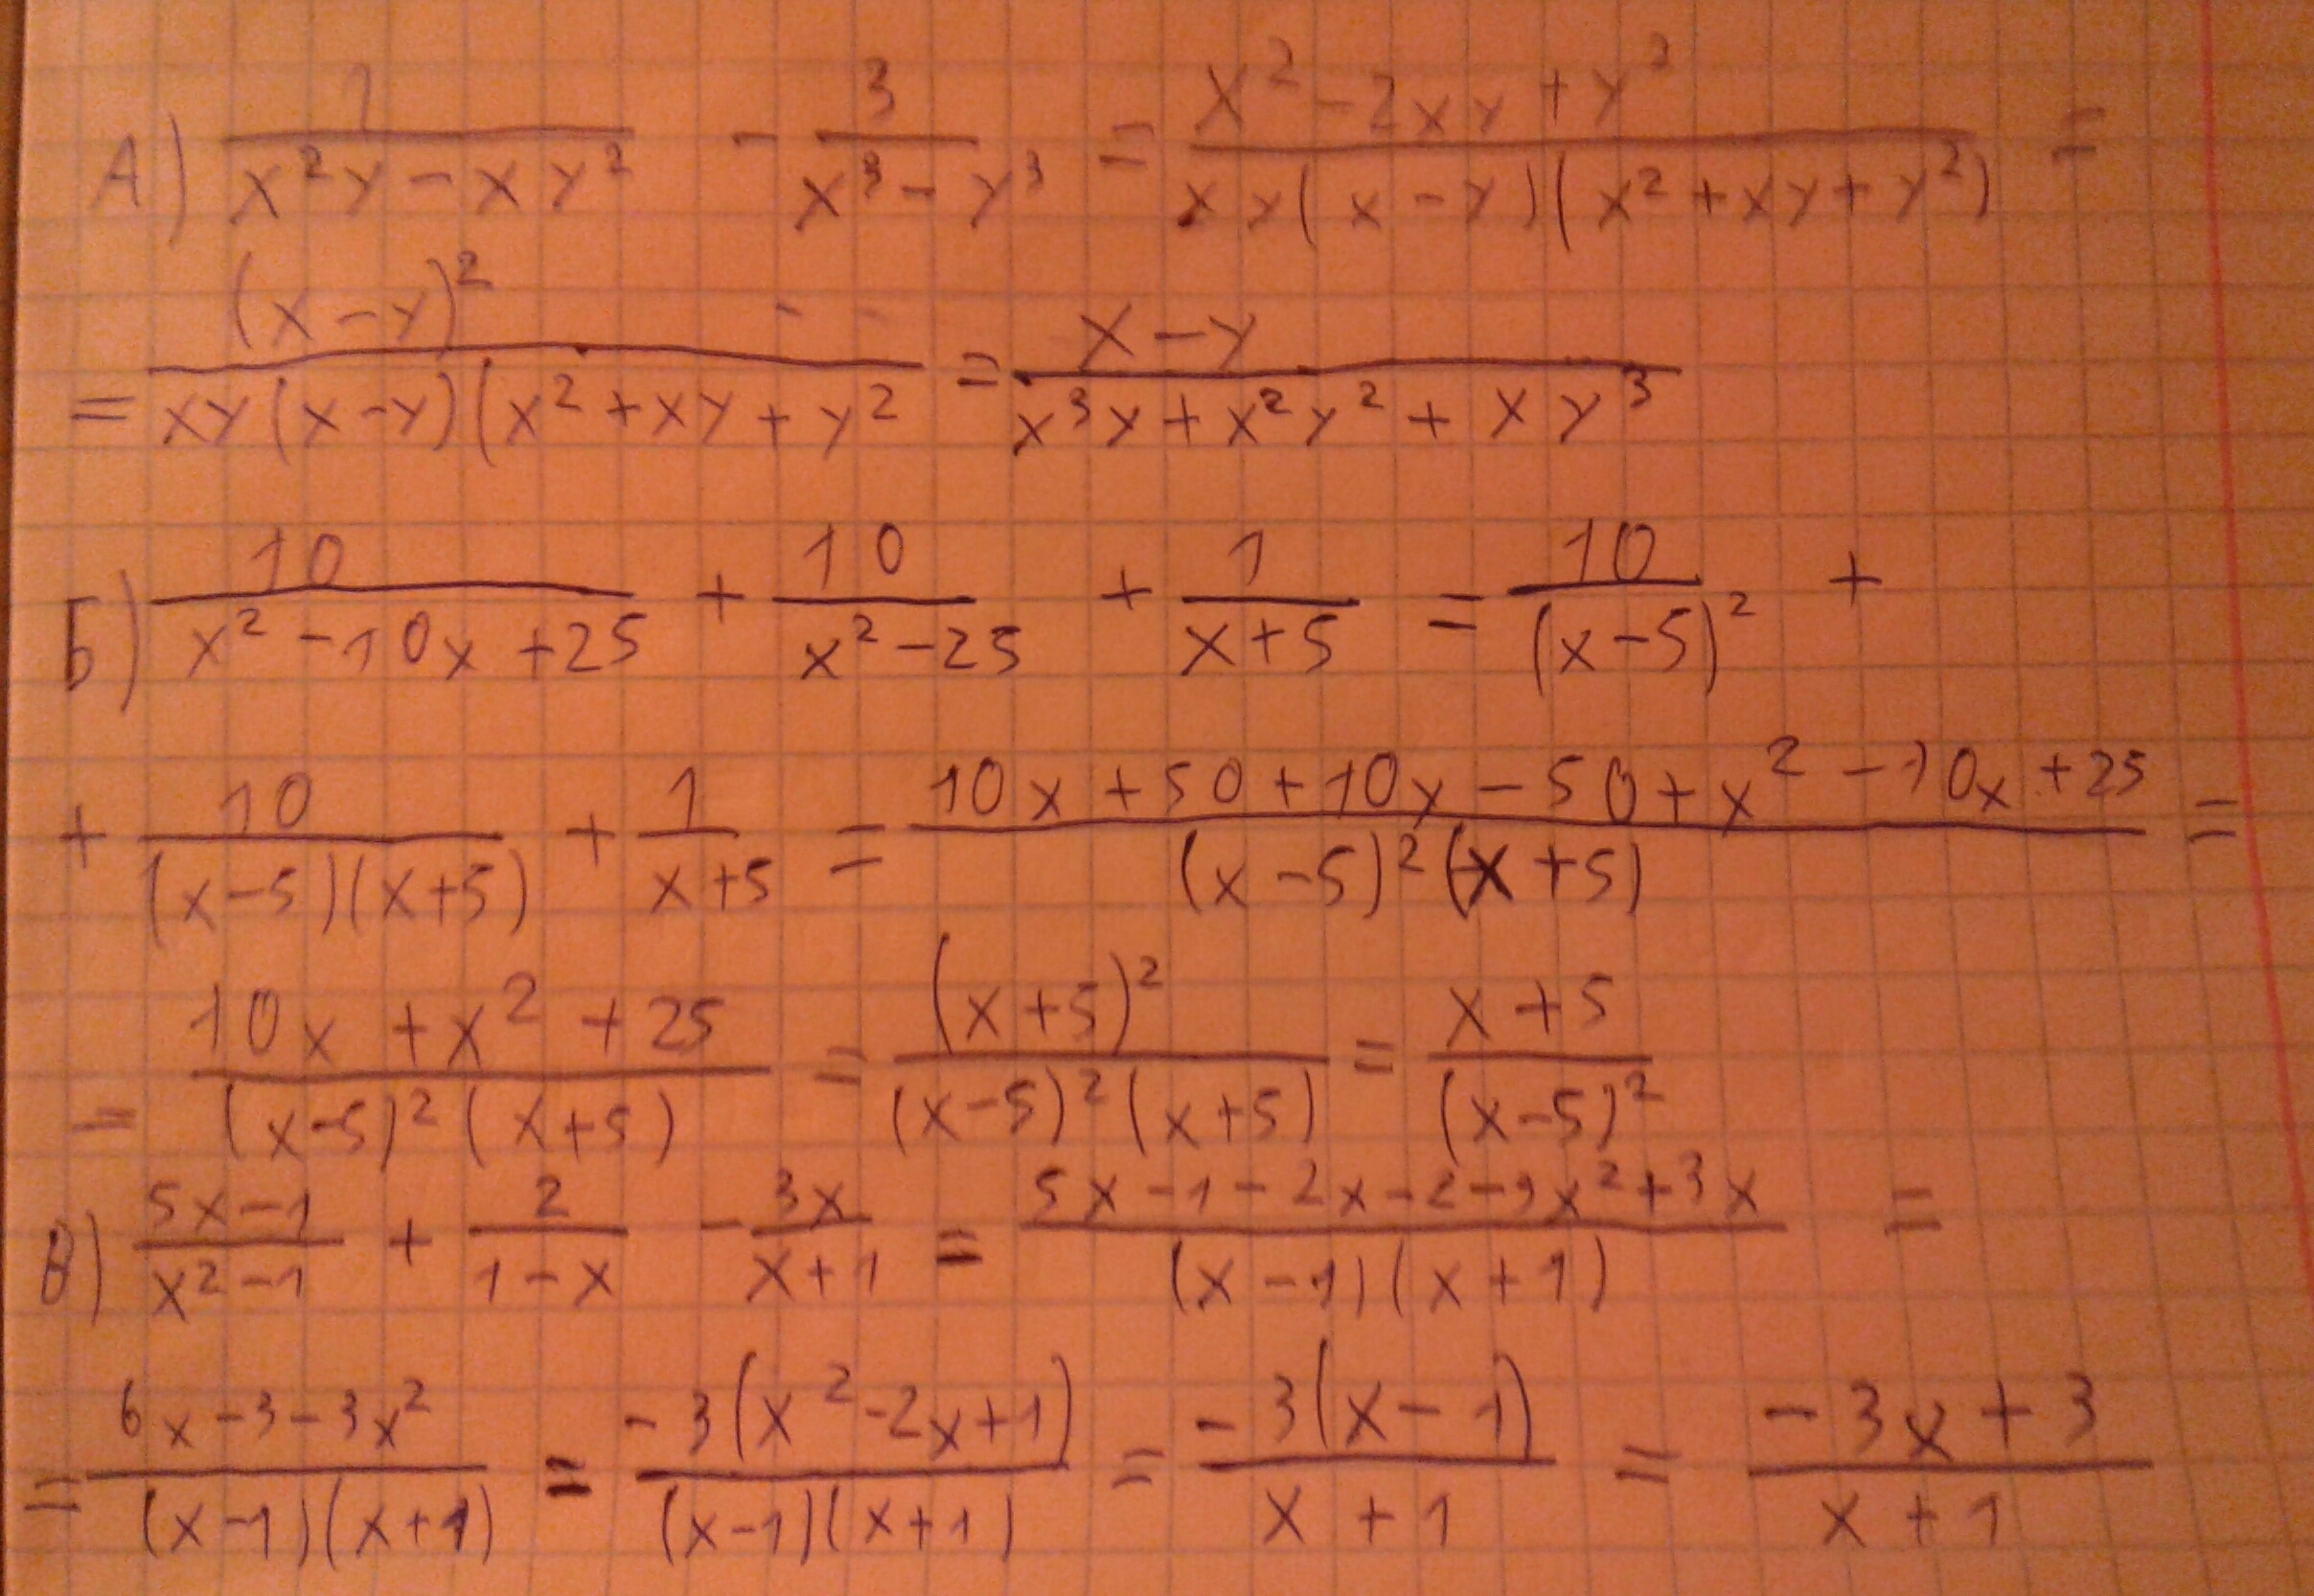 А) 1/(x²y − xy²) − 3/(x³ − y³) = (x² − 2xy + y²)/(xy(x − y)(x² + xy + y²)) =
= (x − y)²/(xy(x − y)(x² + xy + y²) = (x − y)/(x³y + x²y² + xy³)
Б) 10/(x² − 10x + 25) + 10/(x² − 25) + 1/(x + 5) = 10/(x − 5)² +
+ 10/((x − 5)(x + 5)) + 1/(x + 5) = (10x + 50 + 10x − 50 + x² − 10x + 25)/((x − 5)²(x + 5)) =
= (10x + x² + 25)/((x − 5)²(x + 5)) = (x + 5)²/((x − 5)²(x + 5)) = (x + 5)/(x − 5)²
В) (5x − 1)/(x² − 1) + 2/(1 − x) − 3x/(x + 1) = (5x − 1 − 2x − 2 − 3x² + 3x)/((x − 1)(x + 1)) =
= (6x − 3 − 3x²)/((x − 1)(x + 1)) = −3(x² − 2x + 1)/((x − 1)(x + 1)) = −3(x − 1)/(x + 1) = (−3x + 3)/(x + 1)